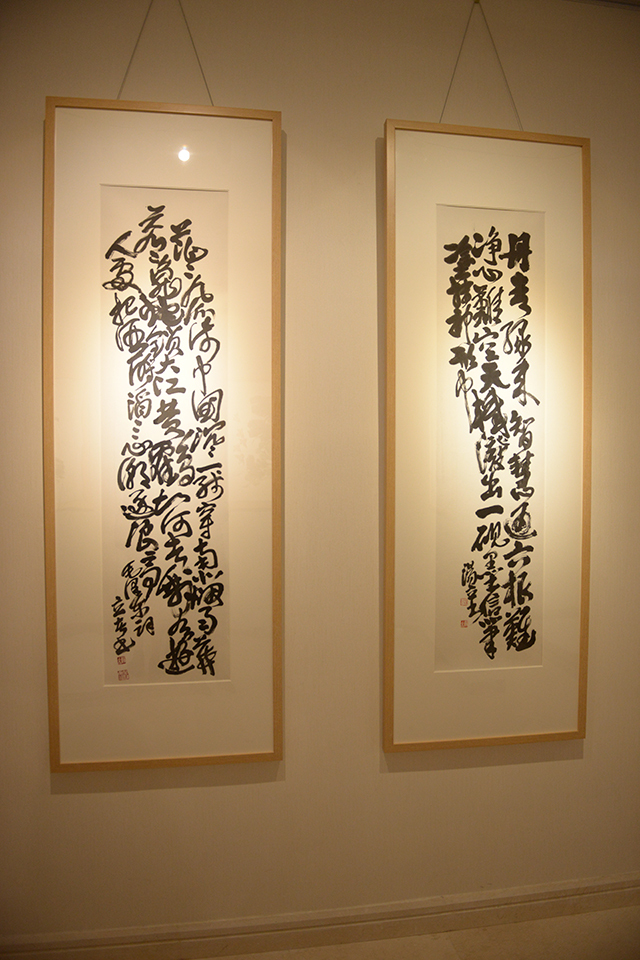 丹青缘来智慧通六根難
淨心難空天機潑出一砚墨信筆
茫茫九派流中國沉沉一线穿南北烟雨莽
苍苍龟蛇锁大江黄鹤知何去剩有遊
人處把酒酹滔滔心潮逐浪高
毛泽东词